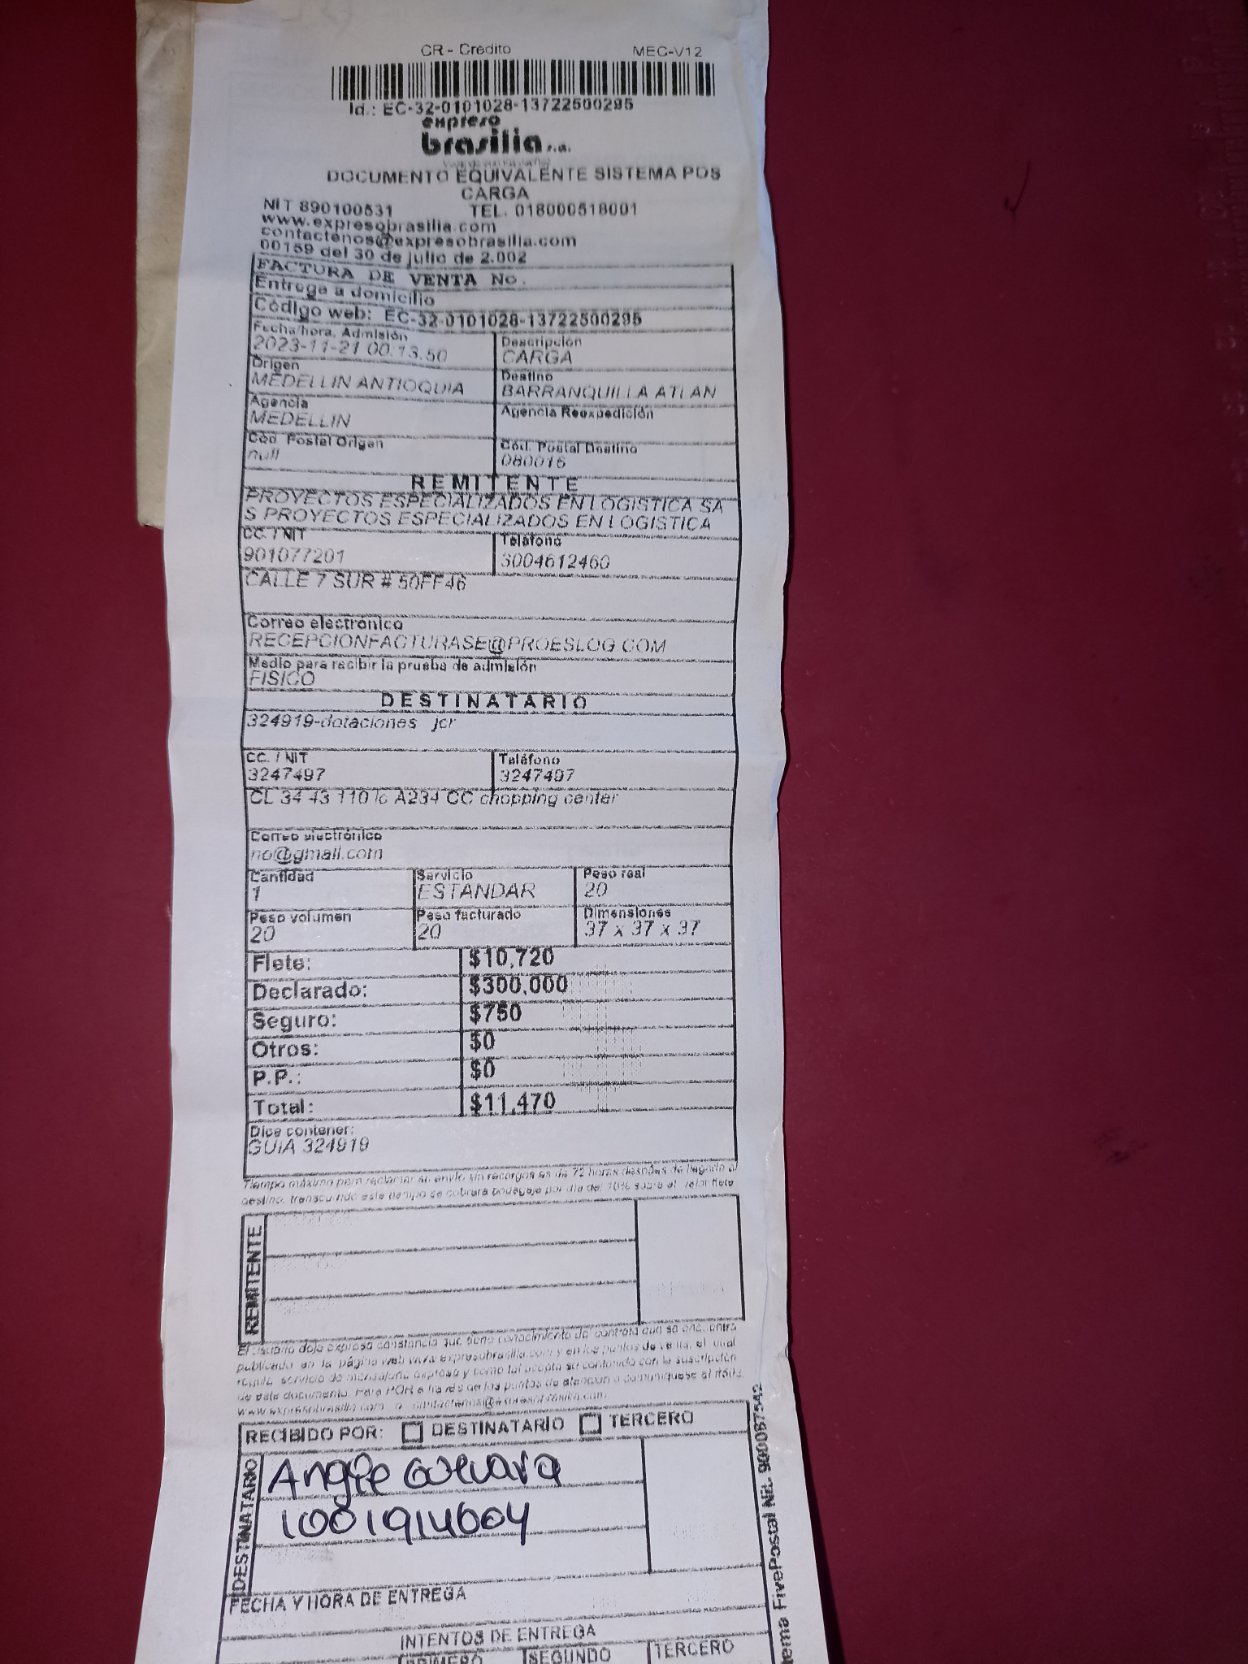 CR - Crédito MEC-V12
Id.: EC-32-0101028-13722500295
expreso
brasilia s.a.
DOCUMENTO EQUIVALENTE SISTEMA POS
CARGA
NIT 890100531 TEL. 018000518001
www.expresobrasilia.com
contactenos@expresobrasilia.com
00159 del 30 de julio de 2.002
FACTURA DE VENTA No.
Entrega a domicilio
Código web: EC-32-0101028-13722500295
Fecha/hora. Admisión Descripción
2023-11-21 00.13.50 CARGA
Origen Destino
MEDELLIN ANTIOQUIA BARRANQUILLA ATLAN
Agencia Agencia Reexpedición
MEDELLIN
Cód. Postal Origen Cód. Postal Destino
null 080015
REMITENTE
PROYECTOS ESPECIALIZADOS EN LOGISTICA SA
S PROYECTOS ESPECIALIZADOS EN LOGISTICA
CC. / NIT Teléfono
901077201 3004612460
CALLE 7 SUR # 50FF46
Correo electrónico
RECEPCIONFACTURASE@PROESLOG.COM
Medio para recibir la prueba de admisión
FISICO
DESTINATARIO
324919-dotaciones jcr
CC. / NIT Teléfono
3247497 3247497
CL 34 43 110 lc A234 CC chopping center
Correo electrónico
no@gmail.com
Cantidad Servicio Peso real
1 ESTANDAR 20
Peso volumen Peso facturado Dimensiones
20 20 37 x 37 x 37
Flete: $10,720
Declarado: $300,000
Seguro: $750
Otros: $0
P.P.: $0
Total: $11,470
Dice contener:
GUIA 324919
Tiempo máximo para reclamar su envío sin recargos es de 72 horas después de llegado al
destino, transcurrido este tiempo se cobrará bodegaje por día del 10% sobre el valor flete
REMITENTE
El usuario deja expresa constancia que tiene conocimiento del contrato que se encuentra
publicado en la página web www.expresobrasilia.com y en los puntos de venta, el cual
regula servicio de mensajería expresa y como tal acepta su contenido con la suscripción
de este documento. Para PQR a través de los puntos de atención o comuníquese al
www.expresobrasilia.com o contactenos@expresobrasilia.com
RECIBIDO POR: DESTINATARIO TERCERO
DESTINATARIO
Angie Guevara
1001914604
FECHA Y HORA DE ENTREGA
INTENTOS DE ENTREGA
PRIMERO SEGUNDO TERCERO
FivePostal Nit. 900087542